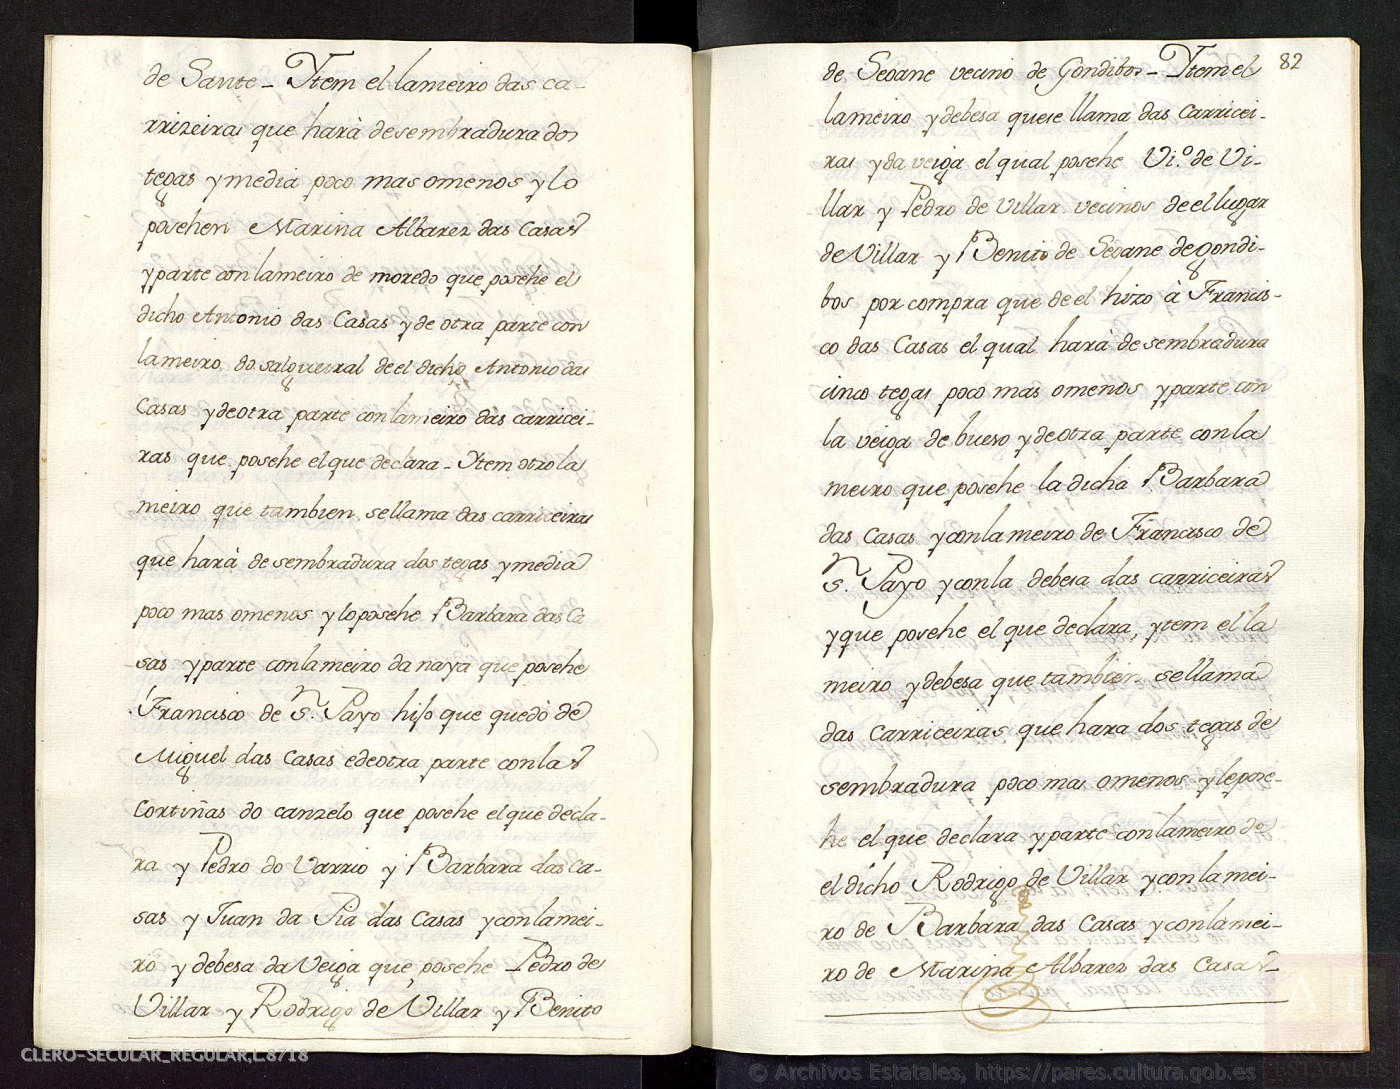 de Sante - Ytem el lameiro das ca-
rrizeiras que harà desembradura dos
tegas y media poco mas omenos y lo
posehen Marina Albarez das Casas
y parte con lameiro de moredo que posehe el
dicho Antonio das Casas y de otra parte con
lameiro do salgueiral de el dicho Antonio das
Casas y de otra parte con lameiro das carricei-
ras que posehe el que declara - Ytem otro la
meiro que tambien se llama das carriceiras
que harà de sembradura dos tegas y media
poco mas omenos y lo posehe Barbara das Ca
sas y parte con lameiro da naya que posehe
Francisco de Sn. Payo hijo que quedò de
Miguel das Casas e de otra parte con las
Cortiñas do canzelo que posehe el que decla-
ra y Pedro do Varrio y Barbara das Ca-
sas y Juan da Pia das Casas y con lamei-
ro y debesa da Veiga que posehe Pedro de
Villar y Rodrigo de Villar y Benito
82
de Seoane vecino de Gondibos - Ytem el
lameiro y debesa que se llama das Carricei-
ras y da veiga el qual posehe Vi.º de Vi-
llar y Pedro de Villar vecinos de el lugar
de Villar y Benito de Seoane de gondi-
bos por compra que de el hizo à Francis-
co das Casas el qual harà de sembradura
cinco tegas poco mas omenos y parte con
la veiga de bueso y de otra parte con la
meiro que posehe la dicha Barbara
das Casas y con lameiro de Francisco de
Sn. Payo y con la debesa das carriceiras
y que posehe el que declara, ytem el la
meiro y debesa que tambien se llama
das Carriceiras que hara dos tegas de
sembradura poco mas omenos y le pose-
he el que declara y parte con lameiro de
el dicho Rodrigo de Villar y con lamei-
ro de Barbara das Casas y con lamei-
ro de Marina Albarez das Casas
CLERO-SECULAR_REGULAR,L.8718
© Archivos Estatales, https://pares.cultura.gob.es
ARCHIVOS
ESTATALES